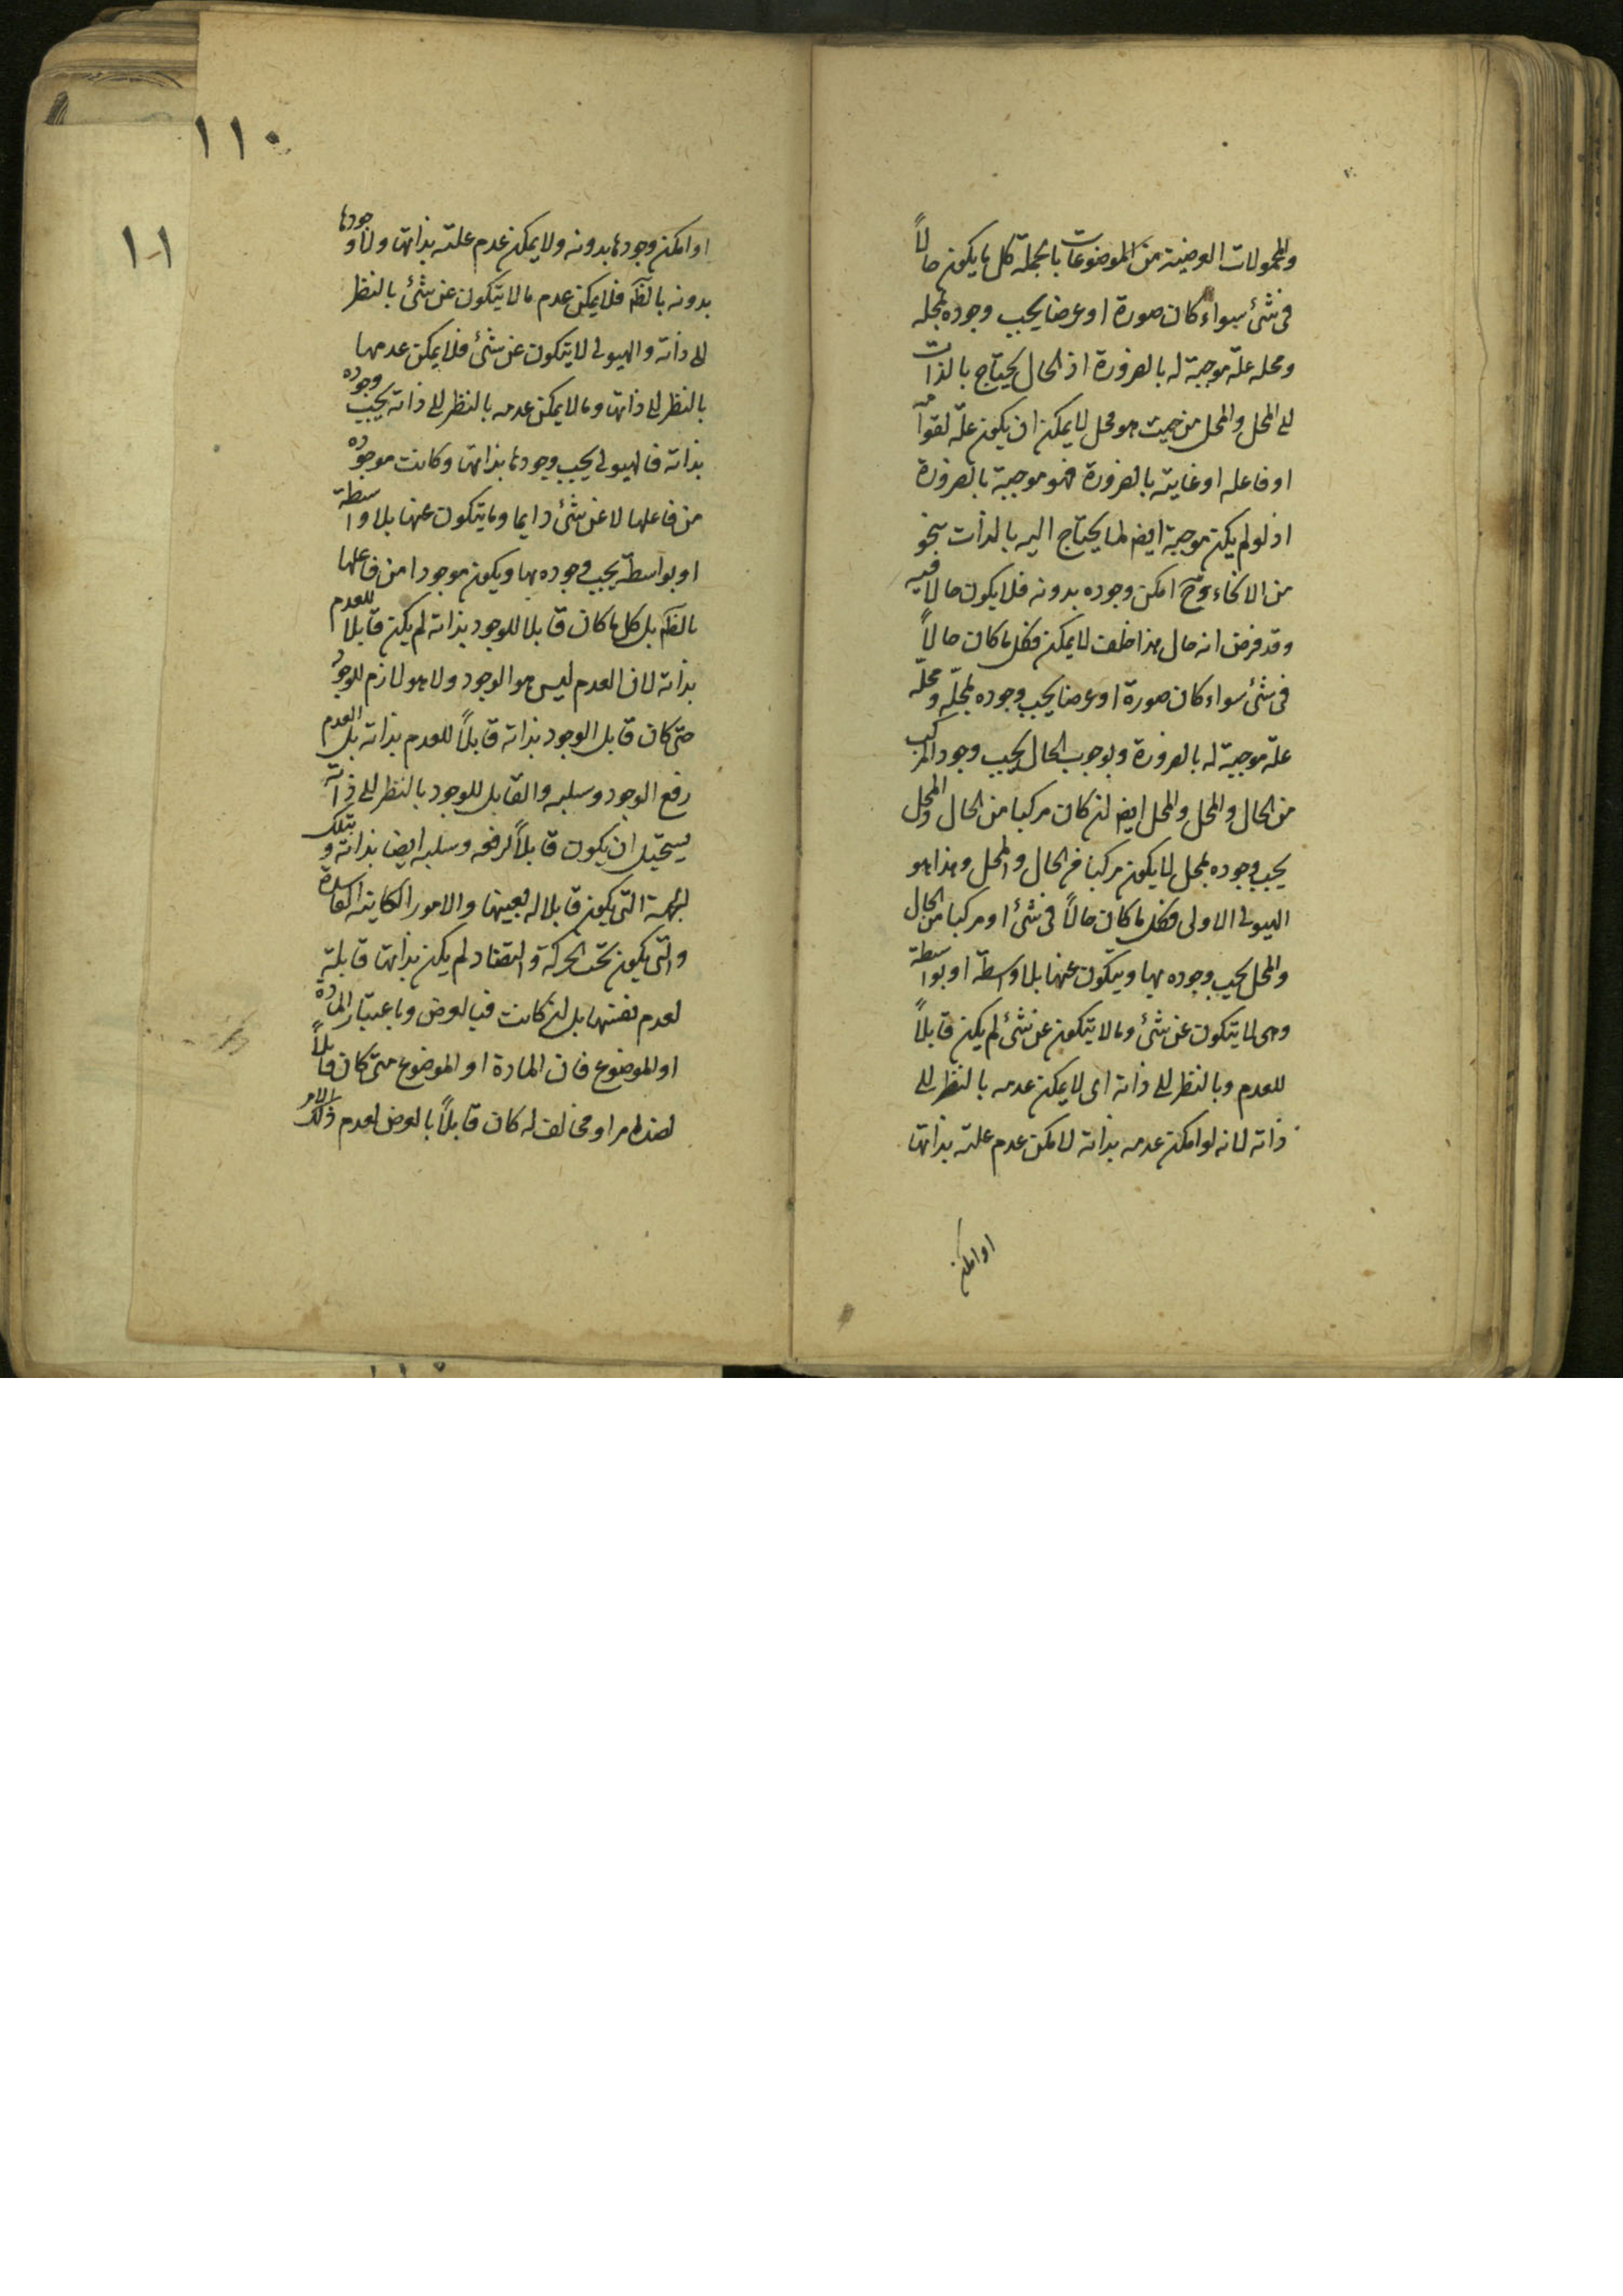 والمحمولات العرضية من الموضوعات بالجملة كل ما يكون حالاً
فى شئ سواء كان صورة او عرضا يجب وجوده لمحله
ومحله علة موجبة له بالضرورة اذ الحال يحتاج بالذات
الى المحل والمحل من حيث هو محل لا يمكن ان يكون علّة لقوامه
او فاعله او غايته بالضرورة فهو موجبة بالضرورة
اذ لو لم يكن موجبة ايضا لما يحتاج اليه بالذات بنحو
من الانحاء وح امكن وجوده بدونه فلا يكون حالا فيه
وقد فرض انه حال هذا خلف لا يمكن فكل ما كان حالاً
فى شئ سواء كان صورة او عرضا يجب وجوده لمحلّه ومحلّه
علّة موجبة له بالضرورة وبوجوب الحال يجب وجود المركب
من الحال والمحل والمحل ايضا لئن كان مركبا من الحال والمحل
يجب وجوده لمحل لا يكون مركبا من الحال والمحل وهذا هو
الهيولى الاولى فكل ما كان حالاً فى شئ او مركبا من الحال
والمحل يجب وجوده بها ويتكون عنها بلا واسطة او بواسطة
وهى لا يتكون عن شئ وما لا يتكون عن شئ لم يكن قابلاً
للعدم وبالنظر الى ذاته اى لا يمكن عدمه بالنظر الى
ذاته لانه لو امكن عدمه بذاته لامكن عدم علته بذاتها
او امكن
١١٠
١٠١
او امكن وجودها بدونه ولا يمكن عدم علته بذاتها ولا وجودها
بدونه بالضرورة فلا يمكن عدم ما لا يتكون عن شئ بالنظر
الى ذاته والهيولى لا يتكون عن شئ فلا يمكن عدمها
بالنظر الى ذاتها وما لا يمكن عدمه بالنظر الى ذاته يجب وجوده
بذاته فالهيولى يجب وجودها بذاتها وكانت موجودة
من فاعلها لا عن شئ دايما وما يتكون عنها بلا واسطة
او بواسطة يجب وجوده بها ويكون موجودا من فاعلها
بالضرورة بل كل ما كان قابلا للوجود بذاته لم يكن قابلا للعدم
بذاته لان العدم ليس هو الوجود ولا هو لازم للوجود
حتى كان قابل الوجود بذاته قابلاً للعدم بذاته بل العدم
رفع الوجود وسلبه والقابل للوجود بالنظر الى ذاته
يستحيل ان يكون قابلاً لرفعه وسلبه ايضا بذاته وبتلك
الجهة التى يكون قابلا له بعينها والامور الكاينة الفاسدة
والتى يكون تحت الحركة والتضاد لم يكن بذاتها قابلة
لعدم نفسها بل لئن كانت فبالعرض وباعتبار المادة
او الموضوع فان المادة او الموضوع متى كان قابلاً
لضد امر او مخالف له كان قابلاً بالعرض لعدم ذلك الامر